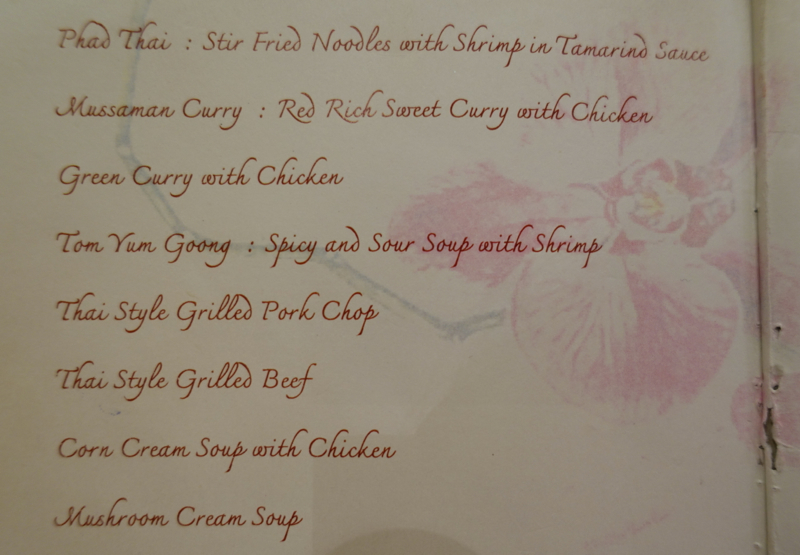 Phad Thai : Stir Fried Noodles with Shrimp in Tamarind Sauce
Mussaman Curry : Red Rich Sweet Curry with Chicken
Green Curry with Chicken
Tom Yum Goong : Spicy and Sour Soup with Shrimp
Thai Style Grilled Pork Chop
Thai Style Grilled Beef
Corn Cream Soup with Chicken
Mushroom Cream Soup